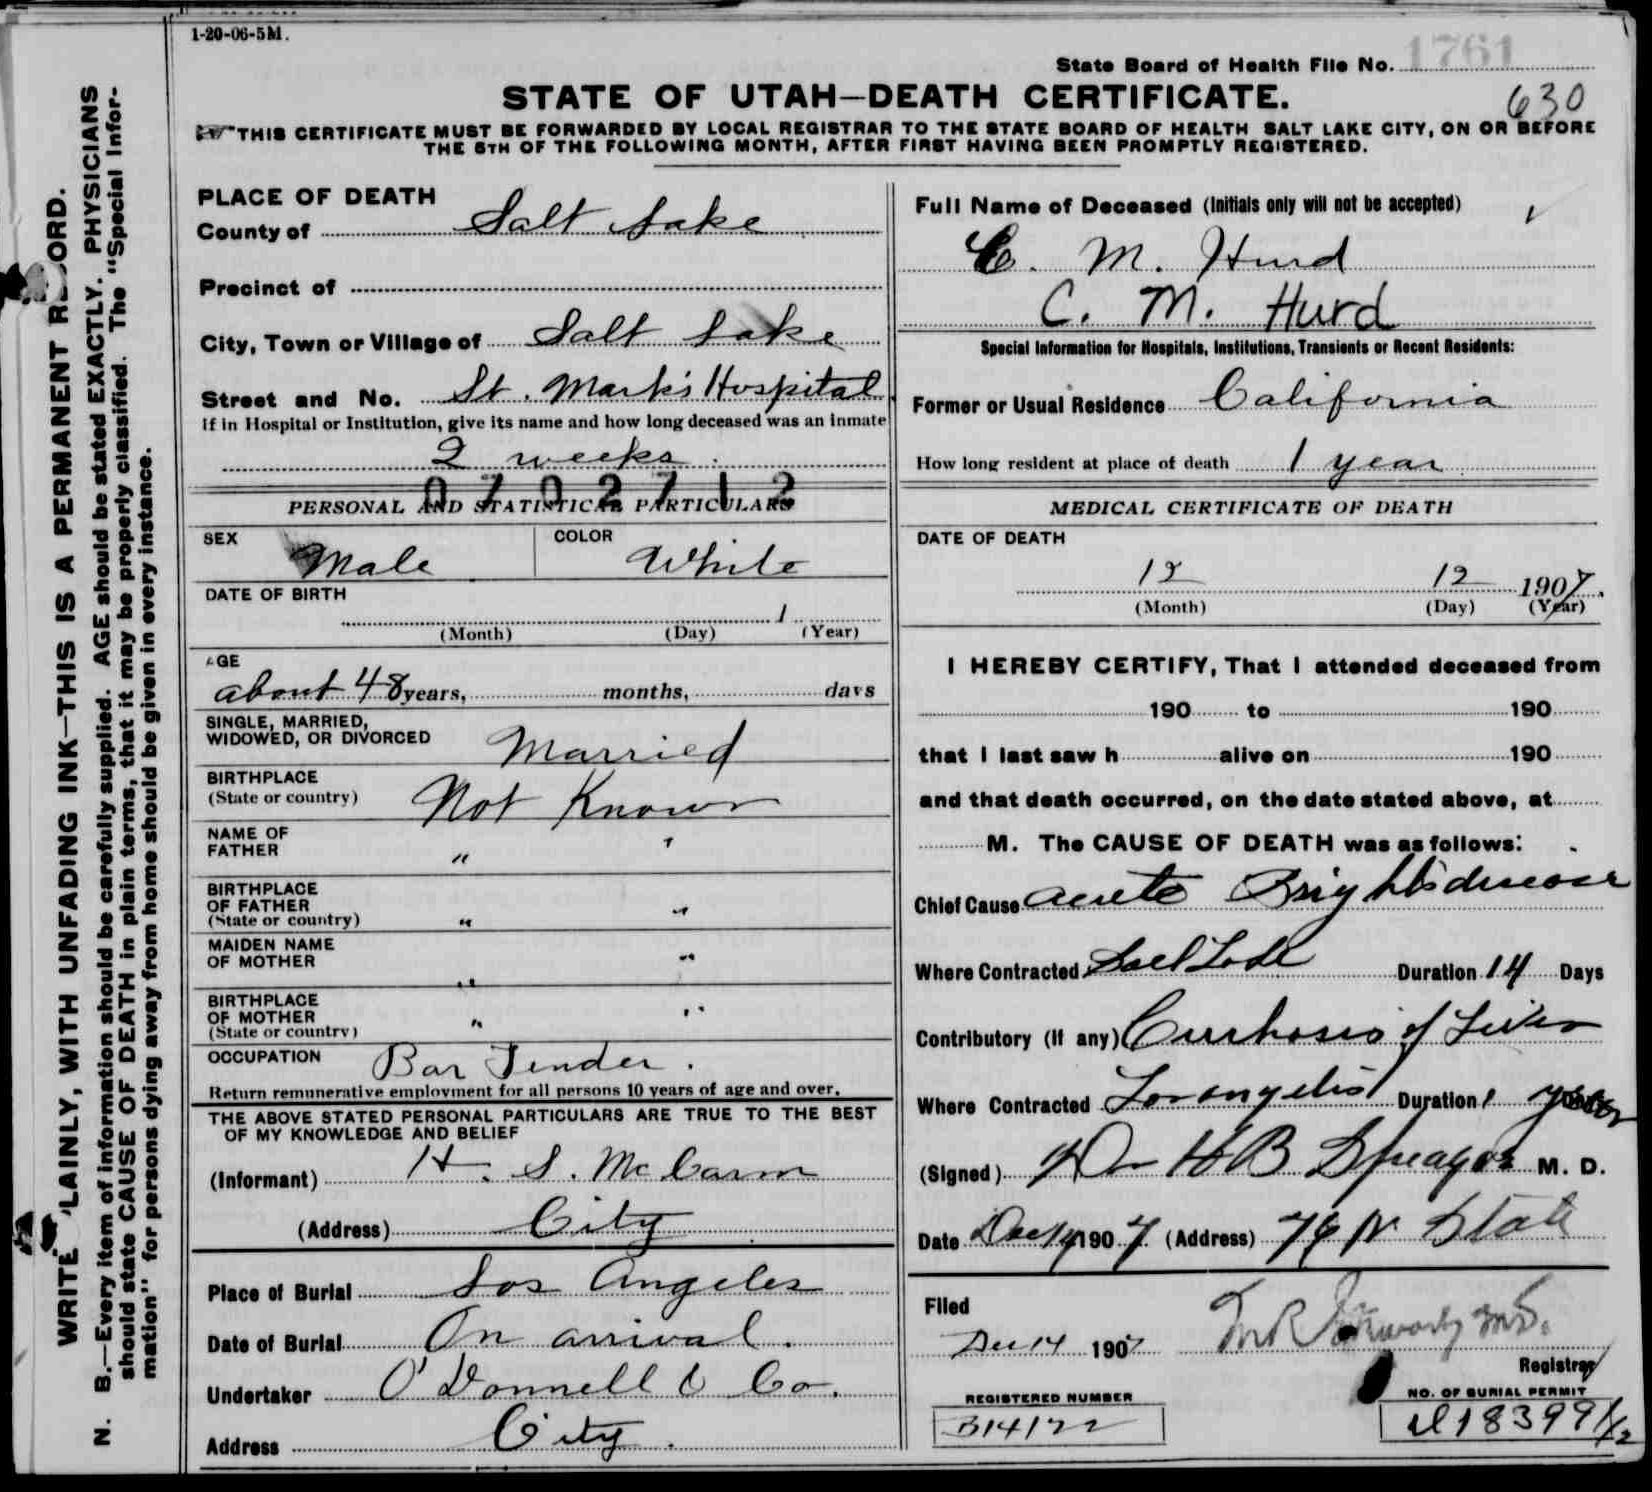 1-20-06-5M.
State Board of Health File No. 1761
STATE OF UTAH—DEATH CERTIFICATE.
630
THIS CERTIFICATE MUST BE FORWARDED BY LOCAL REGISTRAR TO THE STATE BOARD OF HEALTH SALT LAKE CITY, ON OR BEFORE
THE 5TH OF THE FOLLOWING MONTH, AFTER FIRST HAVING BEEN PROMPTLY REGISTERED.
WRITE PLAINLY, WITH UNFADING INK—THIS IS A PERMANENT RECORD.
N. B.—Every item of information should be carefully supplied. AGE should be stated EXACTLY. PHYSICIANS
should state CAUSE OF DEATH in plain terms, that it may be properly classified. The "Special Infor-
mation" for persons dying away from home should be given in every instance.
PLACE OF DEATH
County of Salt Lake
Precinct of
City, Town or Village of Salt Lake
Street and No. St. Mark's Hospital
If in Hospital or Institution, give its name and how long deceased was an inmate
2 weeks
0702712
PERSONAL AND STATISTICAL PARTICULARS
SEX Male COLOR White
DATE OF BIRTH
1
(Month) (Day) (Year)
AGE
about 48 years, months, days
SINGLE, MARRIED,
WIDOWED, OR DIVORCED Married
BIRTHPLACE
(State or country) Not Known
NAME OF
FATHER " "
BIRTHPLACE
OF FATHER
(State or country) " "
MAIDEN NAME
OF MOTHER " "
BIRTHPLACE
OF MOTHER
(State or country) " "
OCCUPATION Bar Tender.
Return remunerative employment for all persons 10 years of age and over.
THE ABOVE STATED PERSONAL PARTICULARS ARE TRUE TO THE BEST
OF MY KNOWLEDGE AND BELIEF
(Informant) H. S. McCann
(Address) City
Place of Burial Los Angeles
Date of Burial On arrival.
Undertaker O'Donnell & Co.
Address City.
Full Name of Deceased (Initials only will not be accepted)
C. M. Hurd
C. M. Hurd
Special Information for Hospitals, Institutions, Transients or Recent Residents:
Former or Usual Residence California
How long resident at place of death 1 year
MEDICAL CERTIFICATE OF DEATH
DATE OF DEATH
12 12 1907.
(Month) (Day) (Year)
I HEREBY CERTIFY, That I attended deceased from
190 to 190
that I last saw h alive on 190
and that death occurred, on the date stated above, at
M. The CAUSE OF DEATH was as follows:
Chief Cause acute Brights disease
Where Contracted Salt Lake Duration 14 Days
Contributory (if any) Cirrhosis of Liver
Where Contracted Los Angeles Duration 1 year
(Signed) Dr H B Sprague M. D.
Date Dec 14 1907 (Address) 76 N State
Filed
Dec 14 1907
Registrar
REGISTERED NUMBER
B14122
NO. OF BURIAL PERMIT
18399 1/2